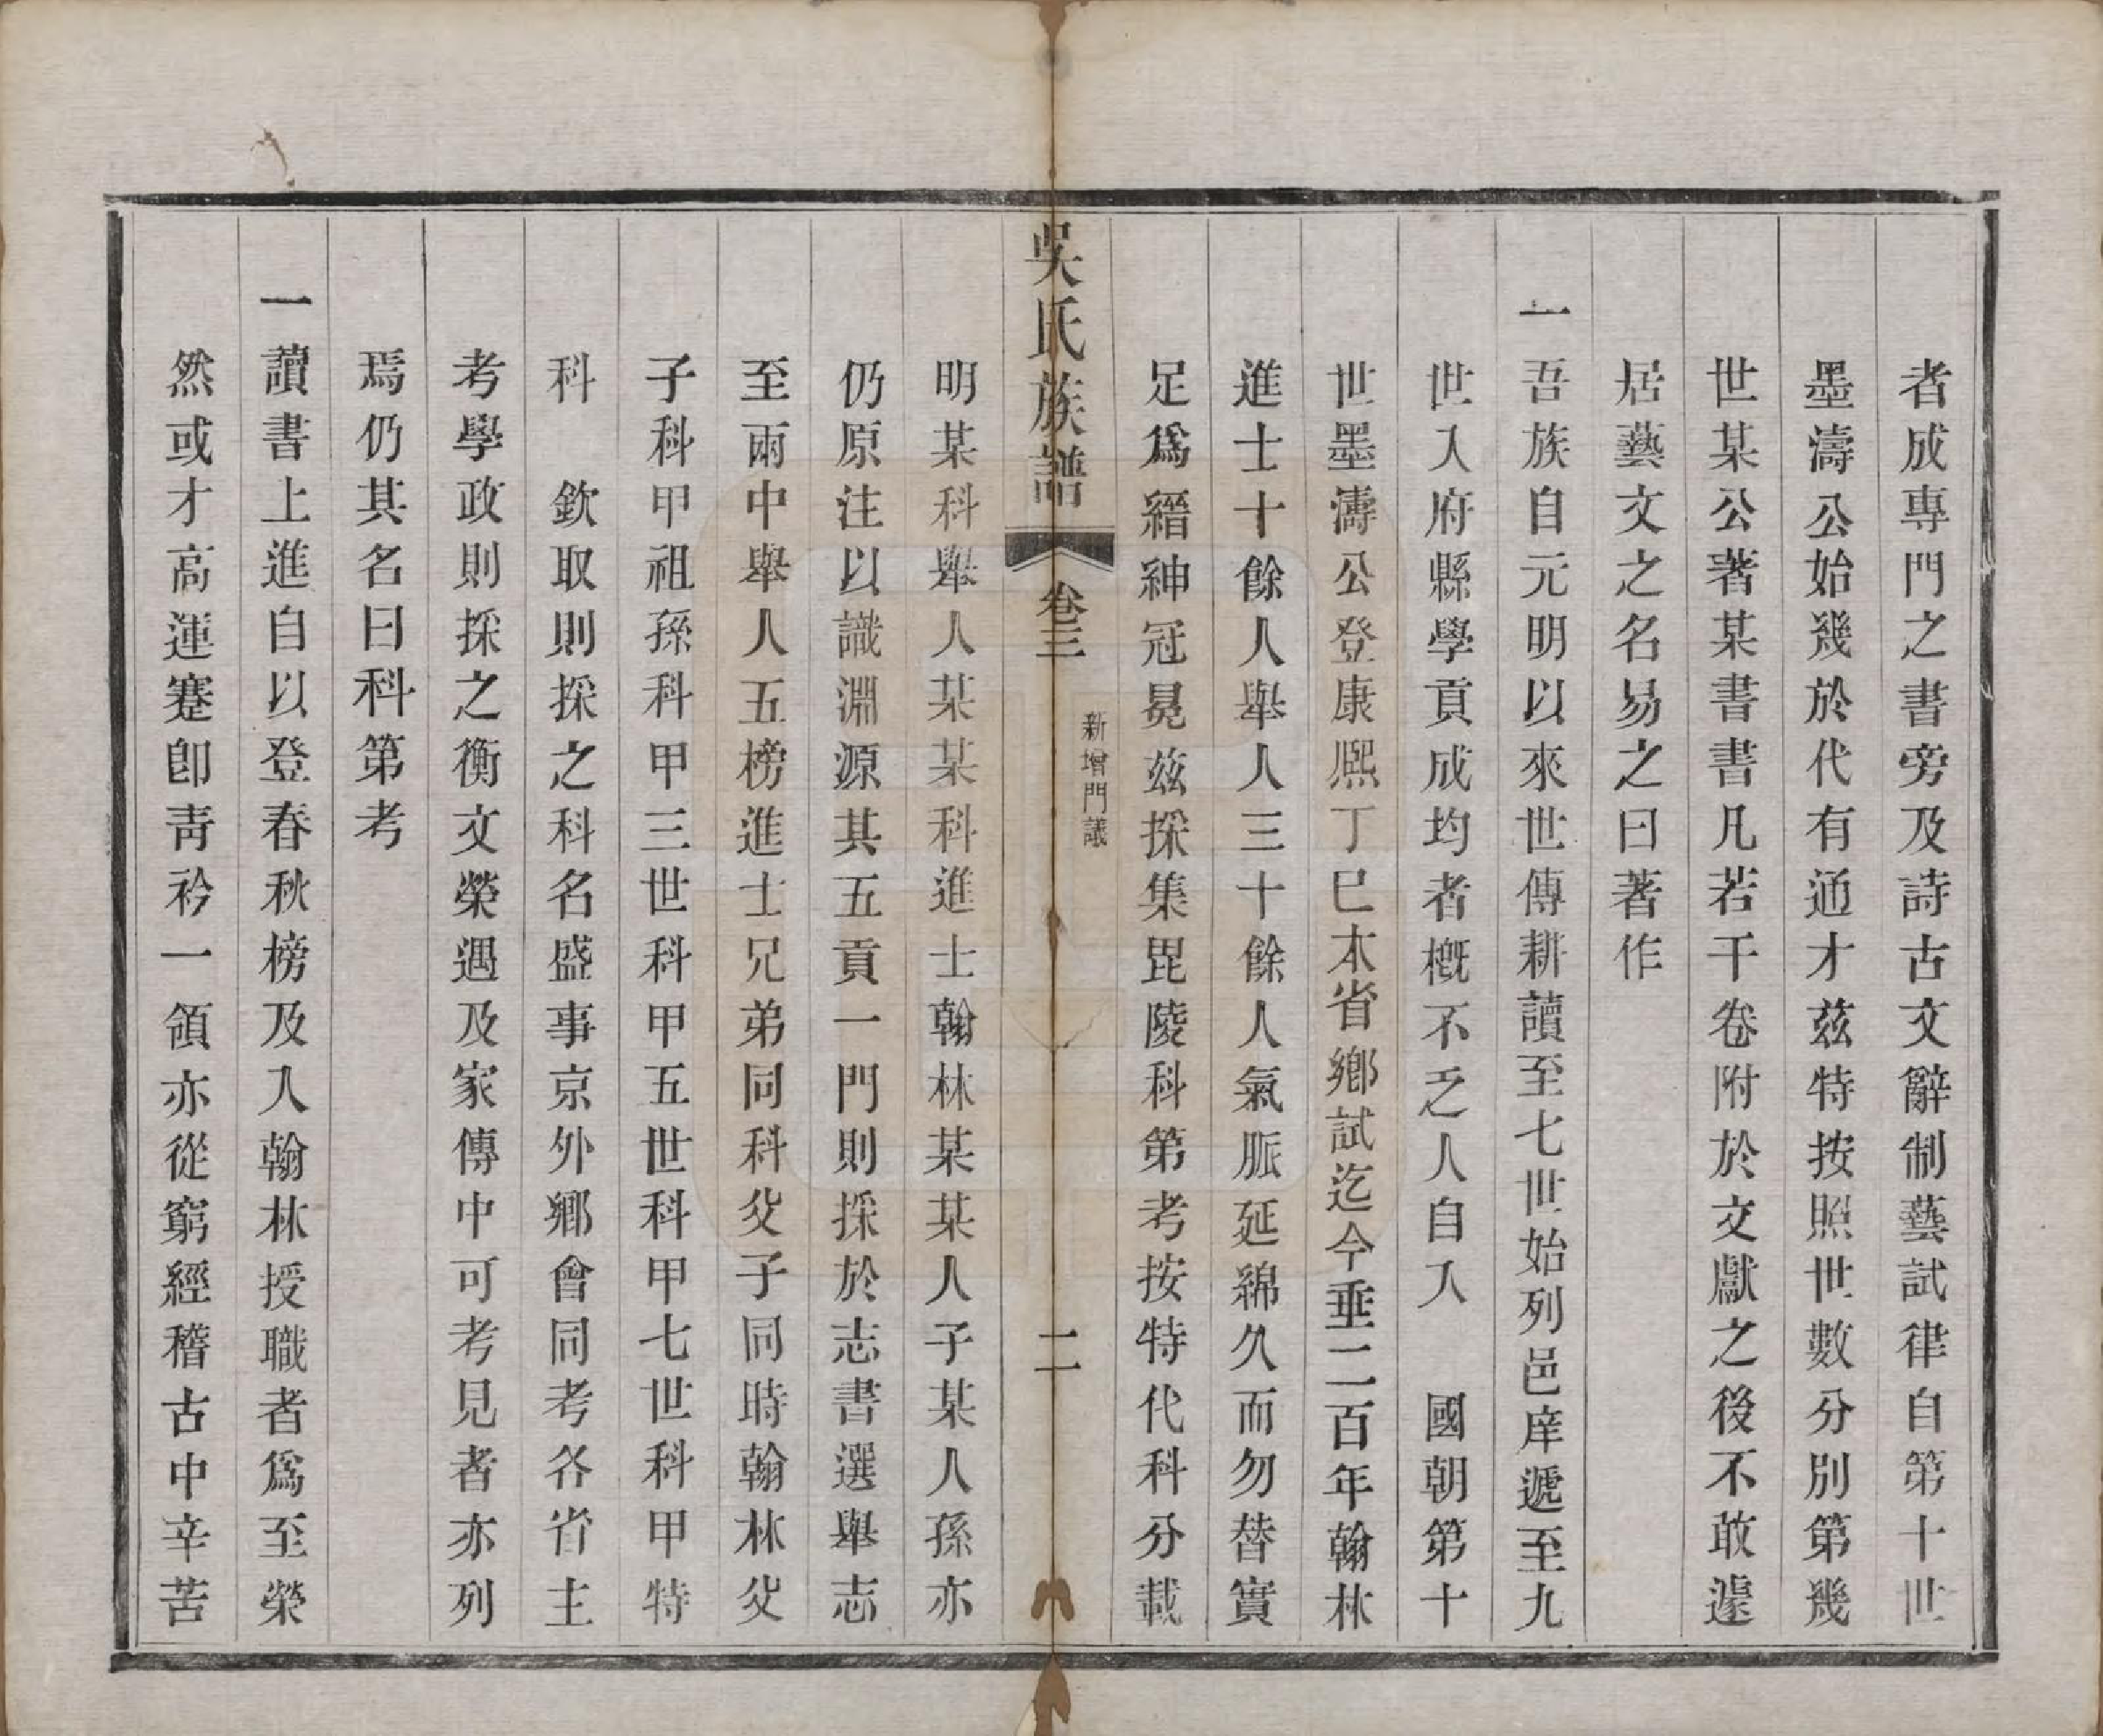 者成專門之書旁及詩古文辭制藝試律自第十世
墨濤公始幾於代有通才茲特按照世數分別第幾
世某公著某書書凡若干卷附於文獻之後不敢遽
居藝文之名易之曰著作
一吾族自元明以來世傳耕讀至七世始列邑庠遞至九
世入府縣學貢成均者槪不乏人自入　國朝第十
世墨濤公登康熙丁巳本省鄉試迄今垂二百年翰林
進士十餘人舉人三十餘人氣脈延綿久而勿替實
足爲縉紳冠冕茲採集毘陵科第考按特代科分載
吳氏族譜　卷三　新增門議　二
明某科舉人某某科進士翰林某某人子某人孫亦
仍原注以識淵源其五貢一門則採於志書選舉志
至兩中舉人五榜進士兄弟同科父子同時翰林父
子科甲祖孫科甲三世科甲五世科甲七世科甲特
科　欽取則採之科名盛事京外鄉會同考各省主
考學政則採之衡文榮遇及家傳中可考見者亦列
焉仍其名曰科第考
一讀書上進自以登春秋榜及入翰林授職者爲至榮
然或才高運蹇卽靑衿一領亦從窮經稽古中辛苦